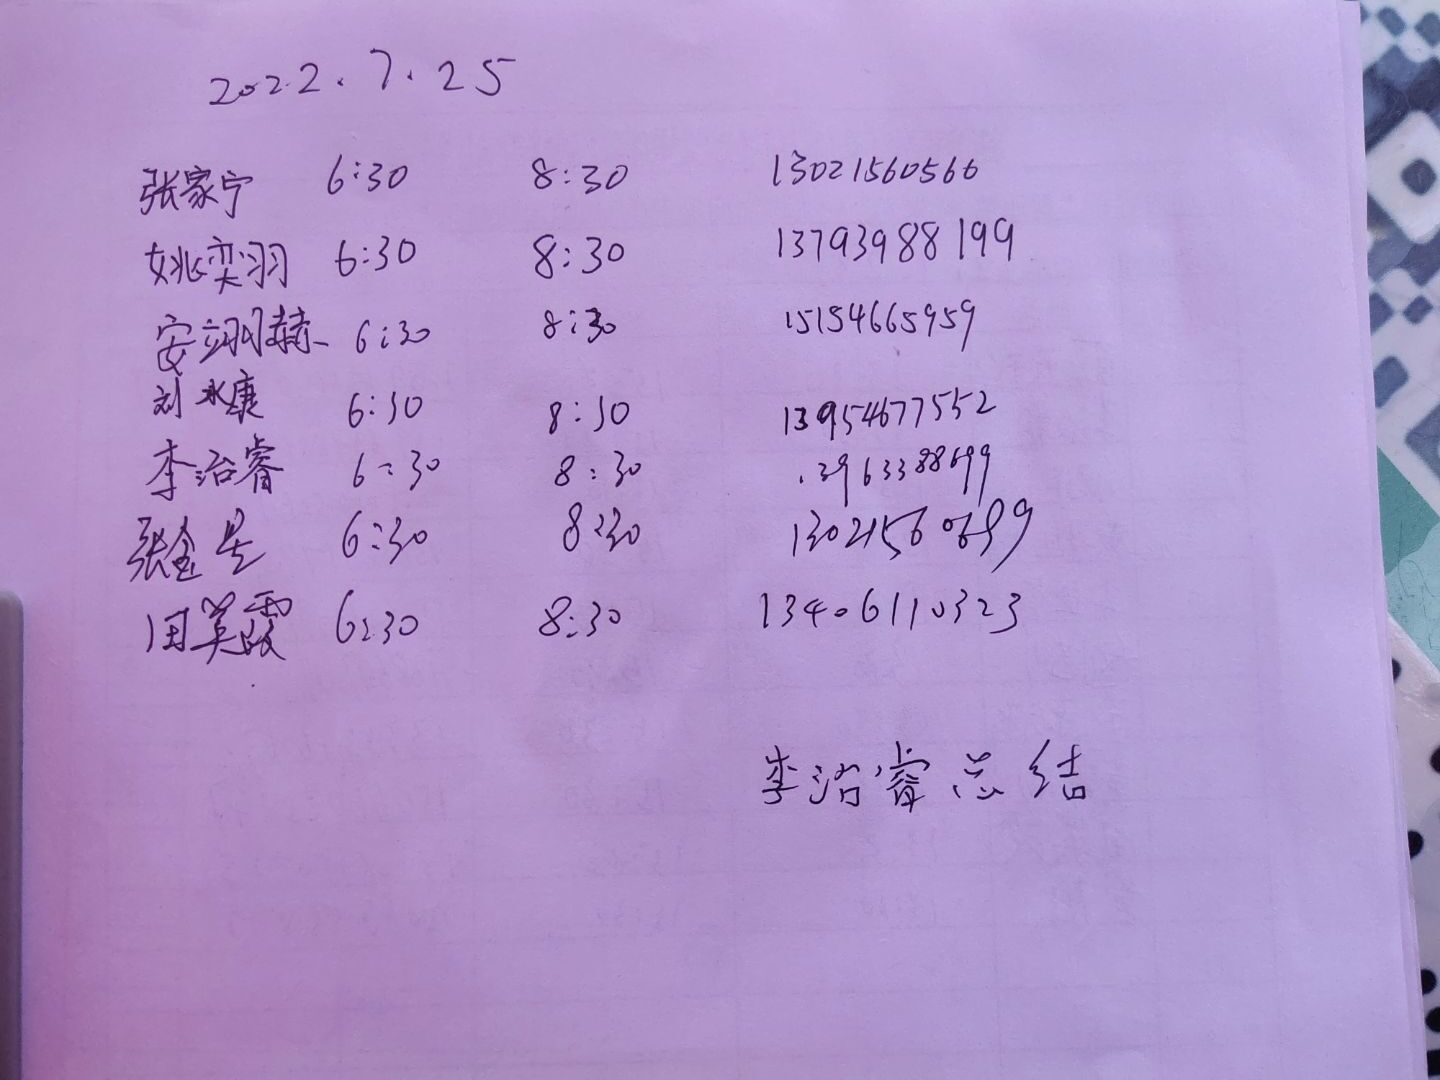 2022.7.25
张家宁 6:30 8:30 13021560566
姚奕羽 6:30 8:30 13793988199
安翊赫 6:30 8:30 15154665959
刘永康 6:30 8:30 13954677552
李治睿 6:30 8:30 13963388699
张金昊 6:30 8:30
田英霞 6:30 8:30 13406110323
李治睿总结